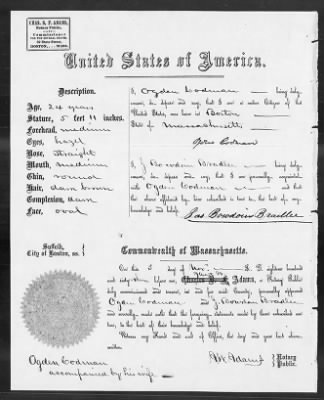 CHAS. B. F. ADAMS,
Notary Public,
Commissioner
BOSTON, MASS.
United States of America.
Description.
Age, 24 years
Stature, 5 feet 11 inches.
Forehead, medium
Eyes, hazel
Nose, straight
Mouth, medium
Chin, round
Hair, dark brown
Complexion, dark
Face, oval
I, Ogden Codman being duly
sworn, do depose and say, that I am a native Citizen of the
United States, was born in Boston
State of Massachusetts
Ogden Codman
I, J Bowdoin Bradlee being duly
sworn, do depose and say, that I am personally acquainted
with Ogden Codman and that
the above affidavit by him subscribed is true to the best of my
knowledge and belief.
Jas Bowdoin Bradlee
Suffolk,
City of Boston, ss.
Commonwealth of Massachusetts.
On this 5 day of Nov A. D. eighteen hundred
and sixty before me, Adams, a Notary Public
duly commissioned and sworn, in and for said County, personally appeared
Ogden Codman and J. Bowdoin Bradlee
and severally made oath that the foregoing statements made by them subscribed are
true, to the best of their knowledge and belief.
Witness my Hand and Seal of Office, the day and year above
written.
Adams Notary
Public.
Ogden Codman
accompanied by his wife